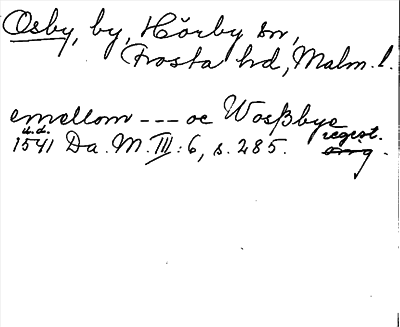 Osby, by, Hörby sn,
Frosta hd, Malm. l.
emellom --- oc Wosßbye
u.d. regist.
1541 Da. M. III: 6, s. 285. orig.